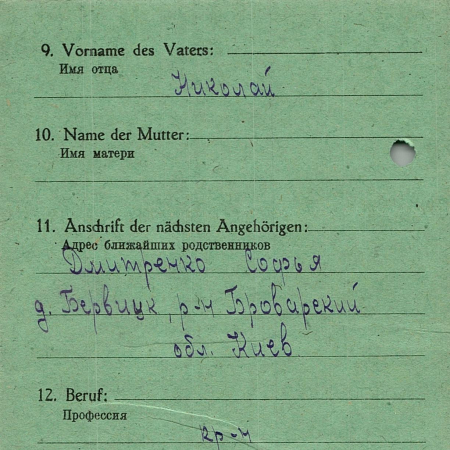 9. Vorname des Vaters:
Имя отца
Николай
10. Name der Mutter:
Имя матери
11. Anschrift der nächsten Angehörigen:
Адрес ближайших родственников
Дмитренко Софья
д. Бервицк, р-н Броварский
обл. Киев
12. Beruf:
Профессия
кр-н